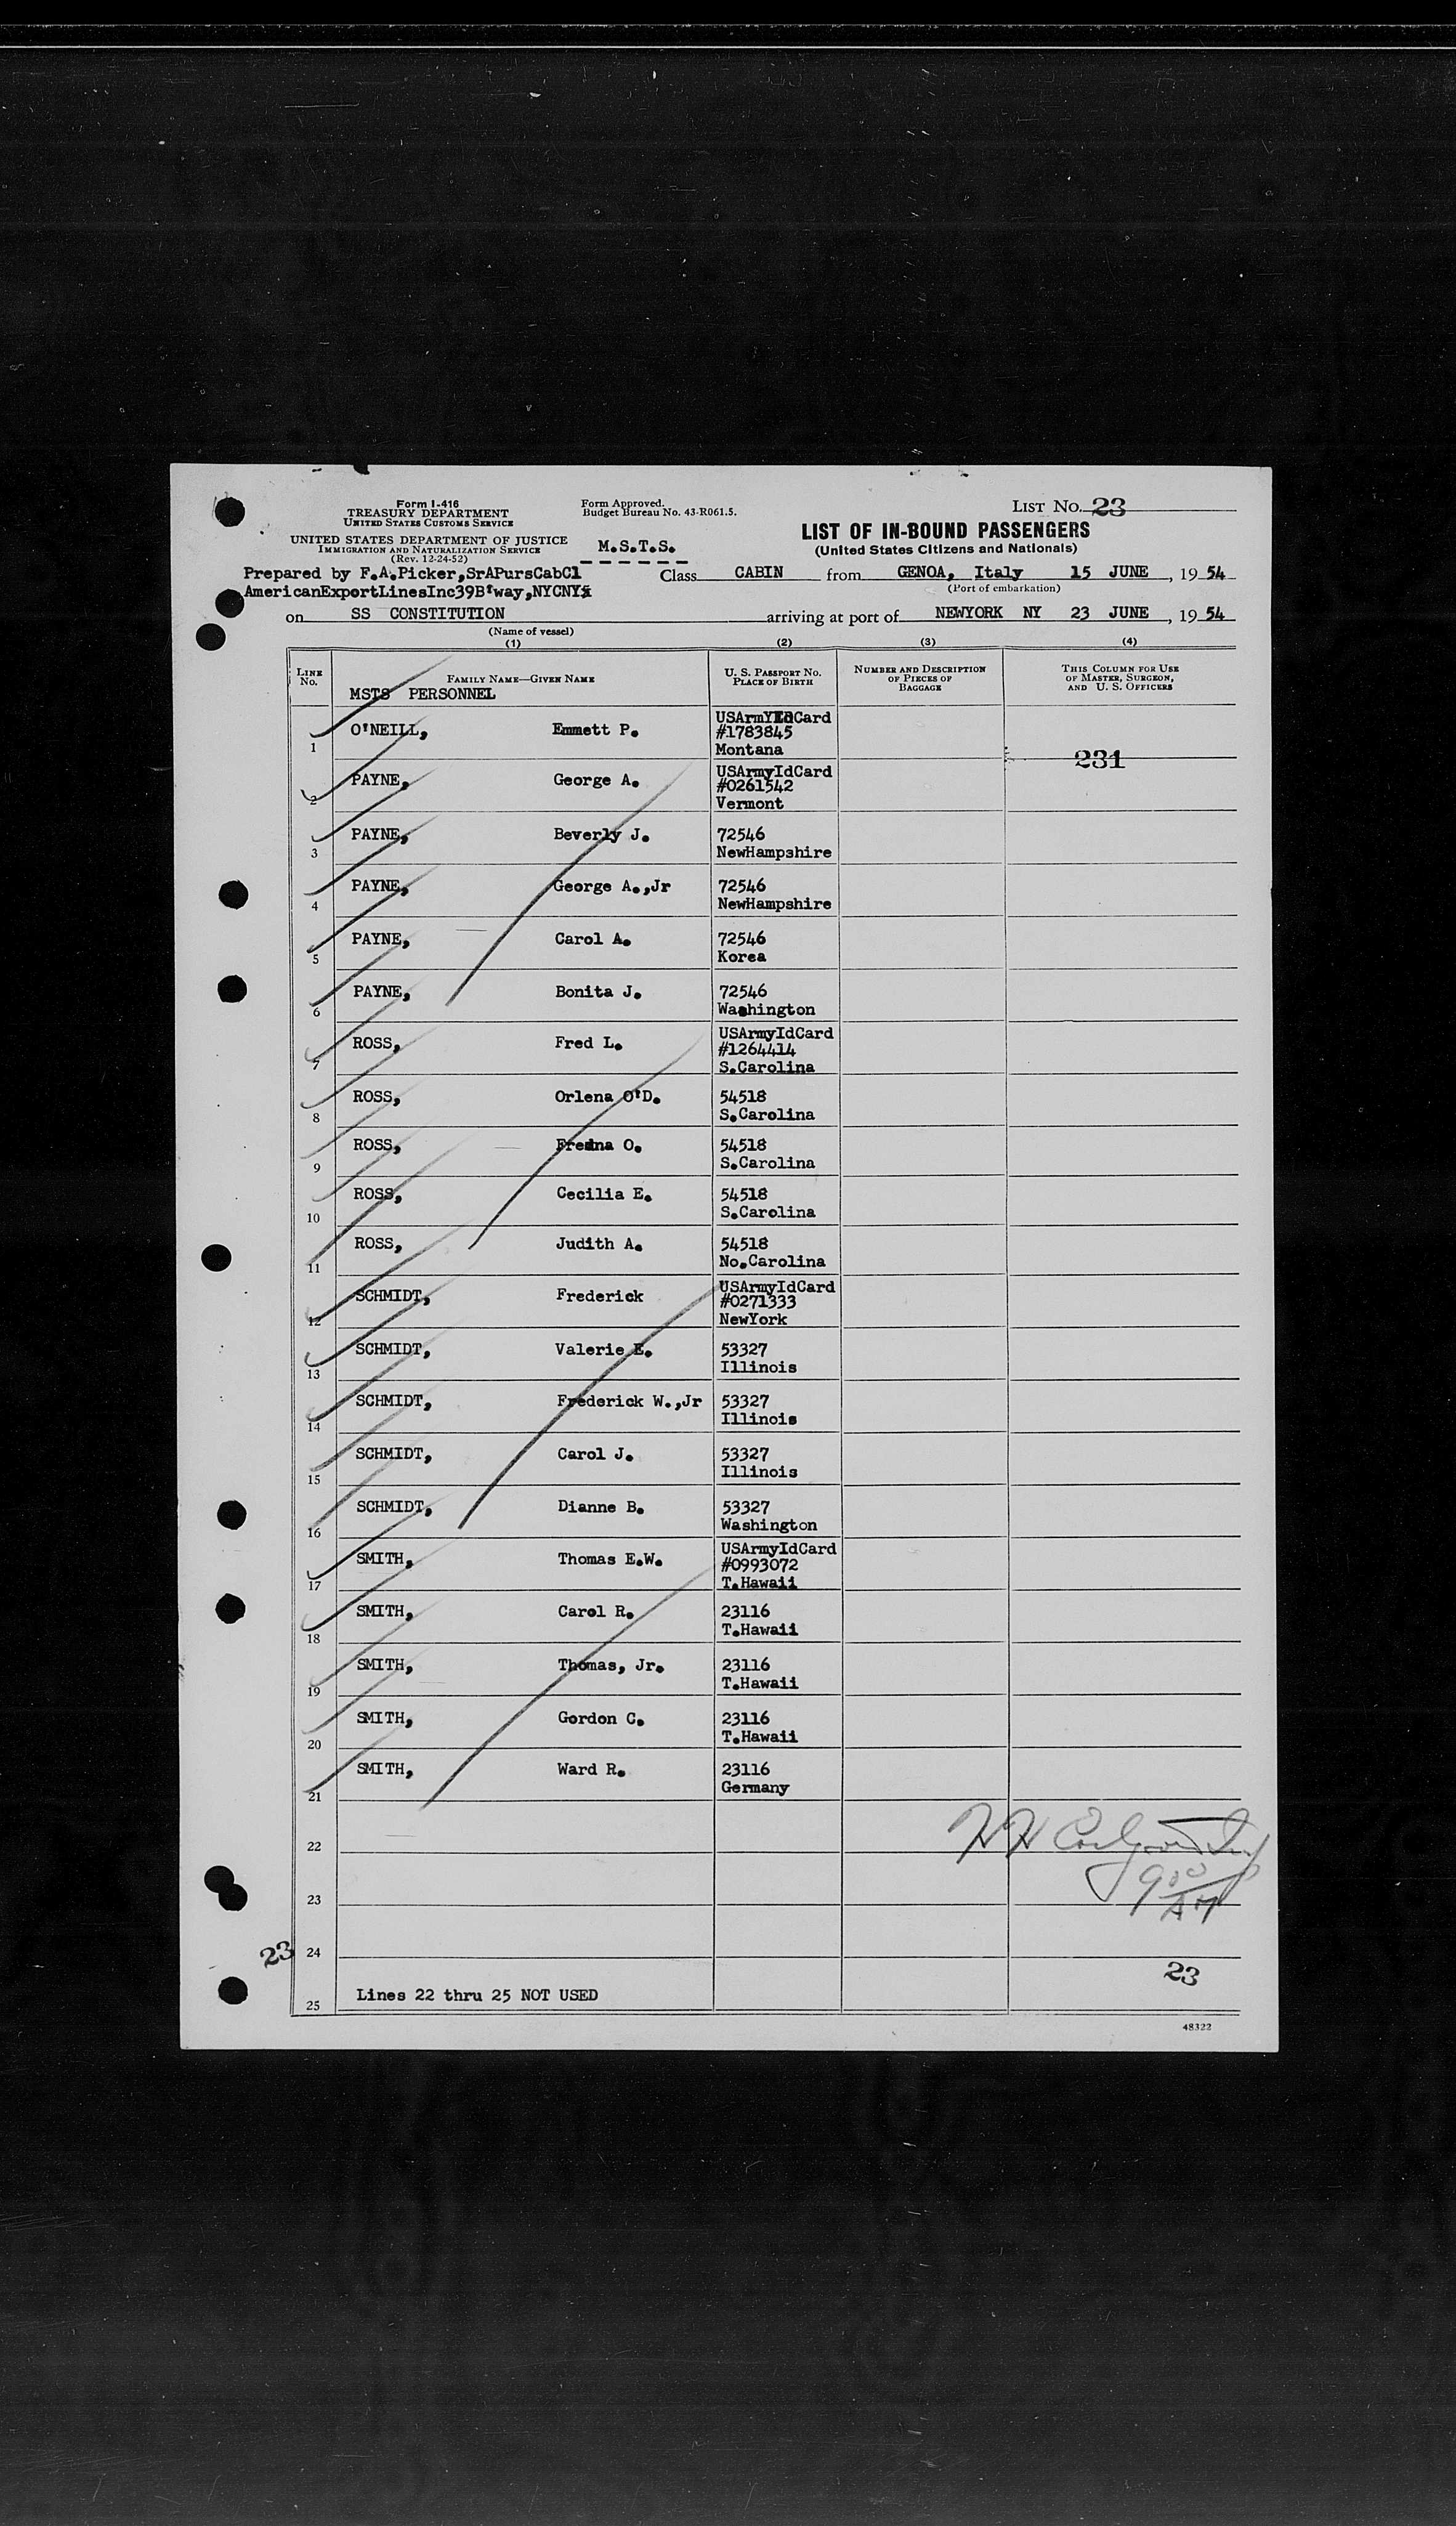 Form I-416
TREASURY DEPARTMENT
UNITED STATES CUSTOMS SERVICE
UNITED STATES DEPARTMENT OF JUSTICE
IMMIGRATION AND NATURALIZATION SERVICE
(Rev. 12-24-52)
Form Approved.
Budget Bureau No. 43-R061.5.
M.S.T.S.
LIST NO. 23
LIST OF IN-BOUND PASSENGERS
(United States Citizens and Nationals)
Prepared by F.A.Picker,SrAPursCabCl
AmericanExportLinesInc39B'way,NYCNY
Class CABIN from GENOA, Italy 15 JUNE, 19 54
(Port of embarkation)
on SS CONSTITUTION arriving at port of NEWYORK NY 23 JUNE, 19 54
(Name of vessel)
(1) (2) (3) (4)
LINE NO.
FAMILY NAME—GIVEN NAME
U. S. PASSPORT NO.
PLACE OF BIRTH
NUMBER AND DESCRIPTION
OF PIECES OF
BAGGAGE
THIS COLUMN FOR USE
OF MASTER, SURGEON,
AND U. S. OFFICERS
MSTS PERSONNEL
1 O'NEILL, Emmett P. USArmyIdCard
#1783845
Montana
231
2 PAYNE, George A. USArmyIdCard
#0261542
Vermont
3 PAYNE, Beverly J. 72546
NewHampshire
4 PAYNE, George A.,Jr 72546
NewHampshire
5 PAYNE, Carol A. 72546
Korea
6 PAYNE, Bonita J. 72546
Washington
7 ROSS, Fred L. USArmyIdCard
#1264414
S.Carolina
8 ROSS, Orlena O'D. 54518
S.Carolina
9 ROSS, Fredna O. 54518
S.Carolina
10 ROSS, Cecilia E. 54518
S.Carolina
11 ROSS, Judith A. 54518
No.Carolina
12 SCHMIDT, Frederick USArmyIdCard
#0271333
NewYork
13 SCHMIDT, Valerie E. 53327
Illinois
14 SCHMIDT, Frederick W.,Jr 53327
Illinois
15 SCHMIDT, Carol J. 53327
Illinois
16 SCHMIDT, Dianne B. 53327
Washington
17 SMITH, Thomas E.W. USArmyIdCard
#0993072
T.Hawaii
18 SMITH, Carol R. 23116
T.Hawaii
19 SMITH, Thomas, Jr. 23116
T.Hawaii
20 SMITH, Gordon C. 23116
T.Hawaii
21 SMITH, Ward R. 23116
Germany
22
23
900
AM
23 24
23
25 Lines 22 thru 25 NOT USED
48322